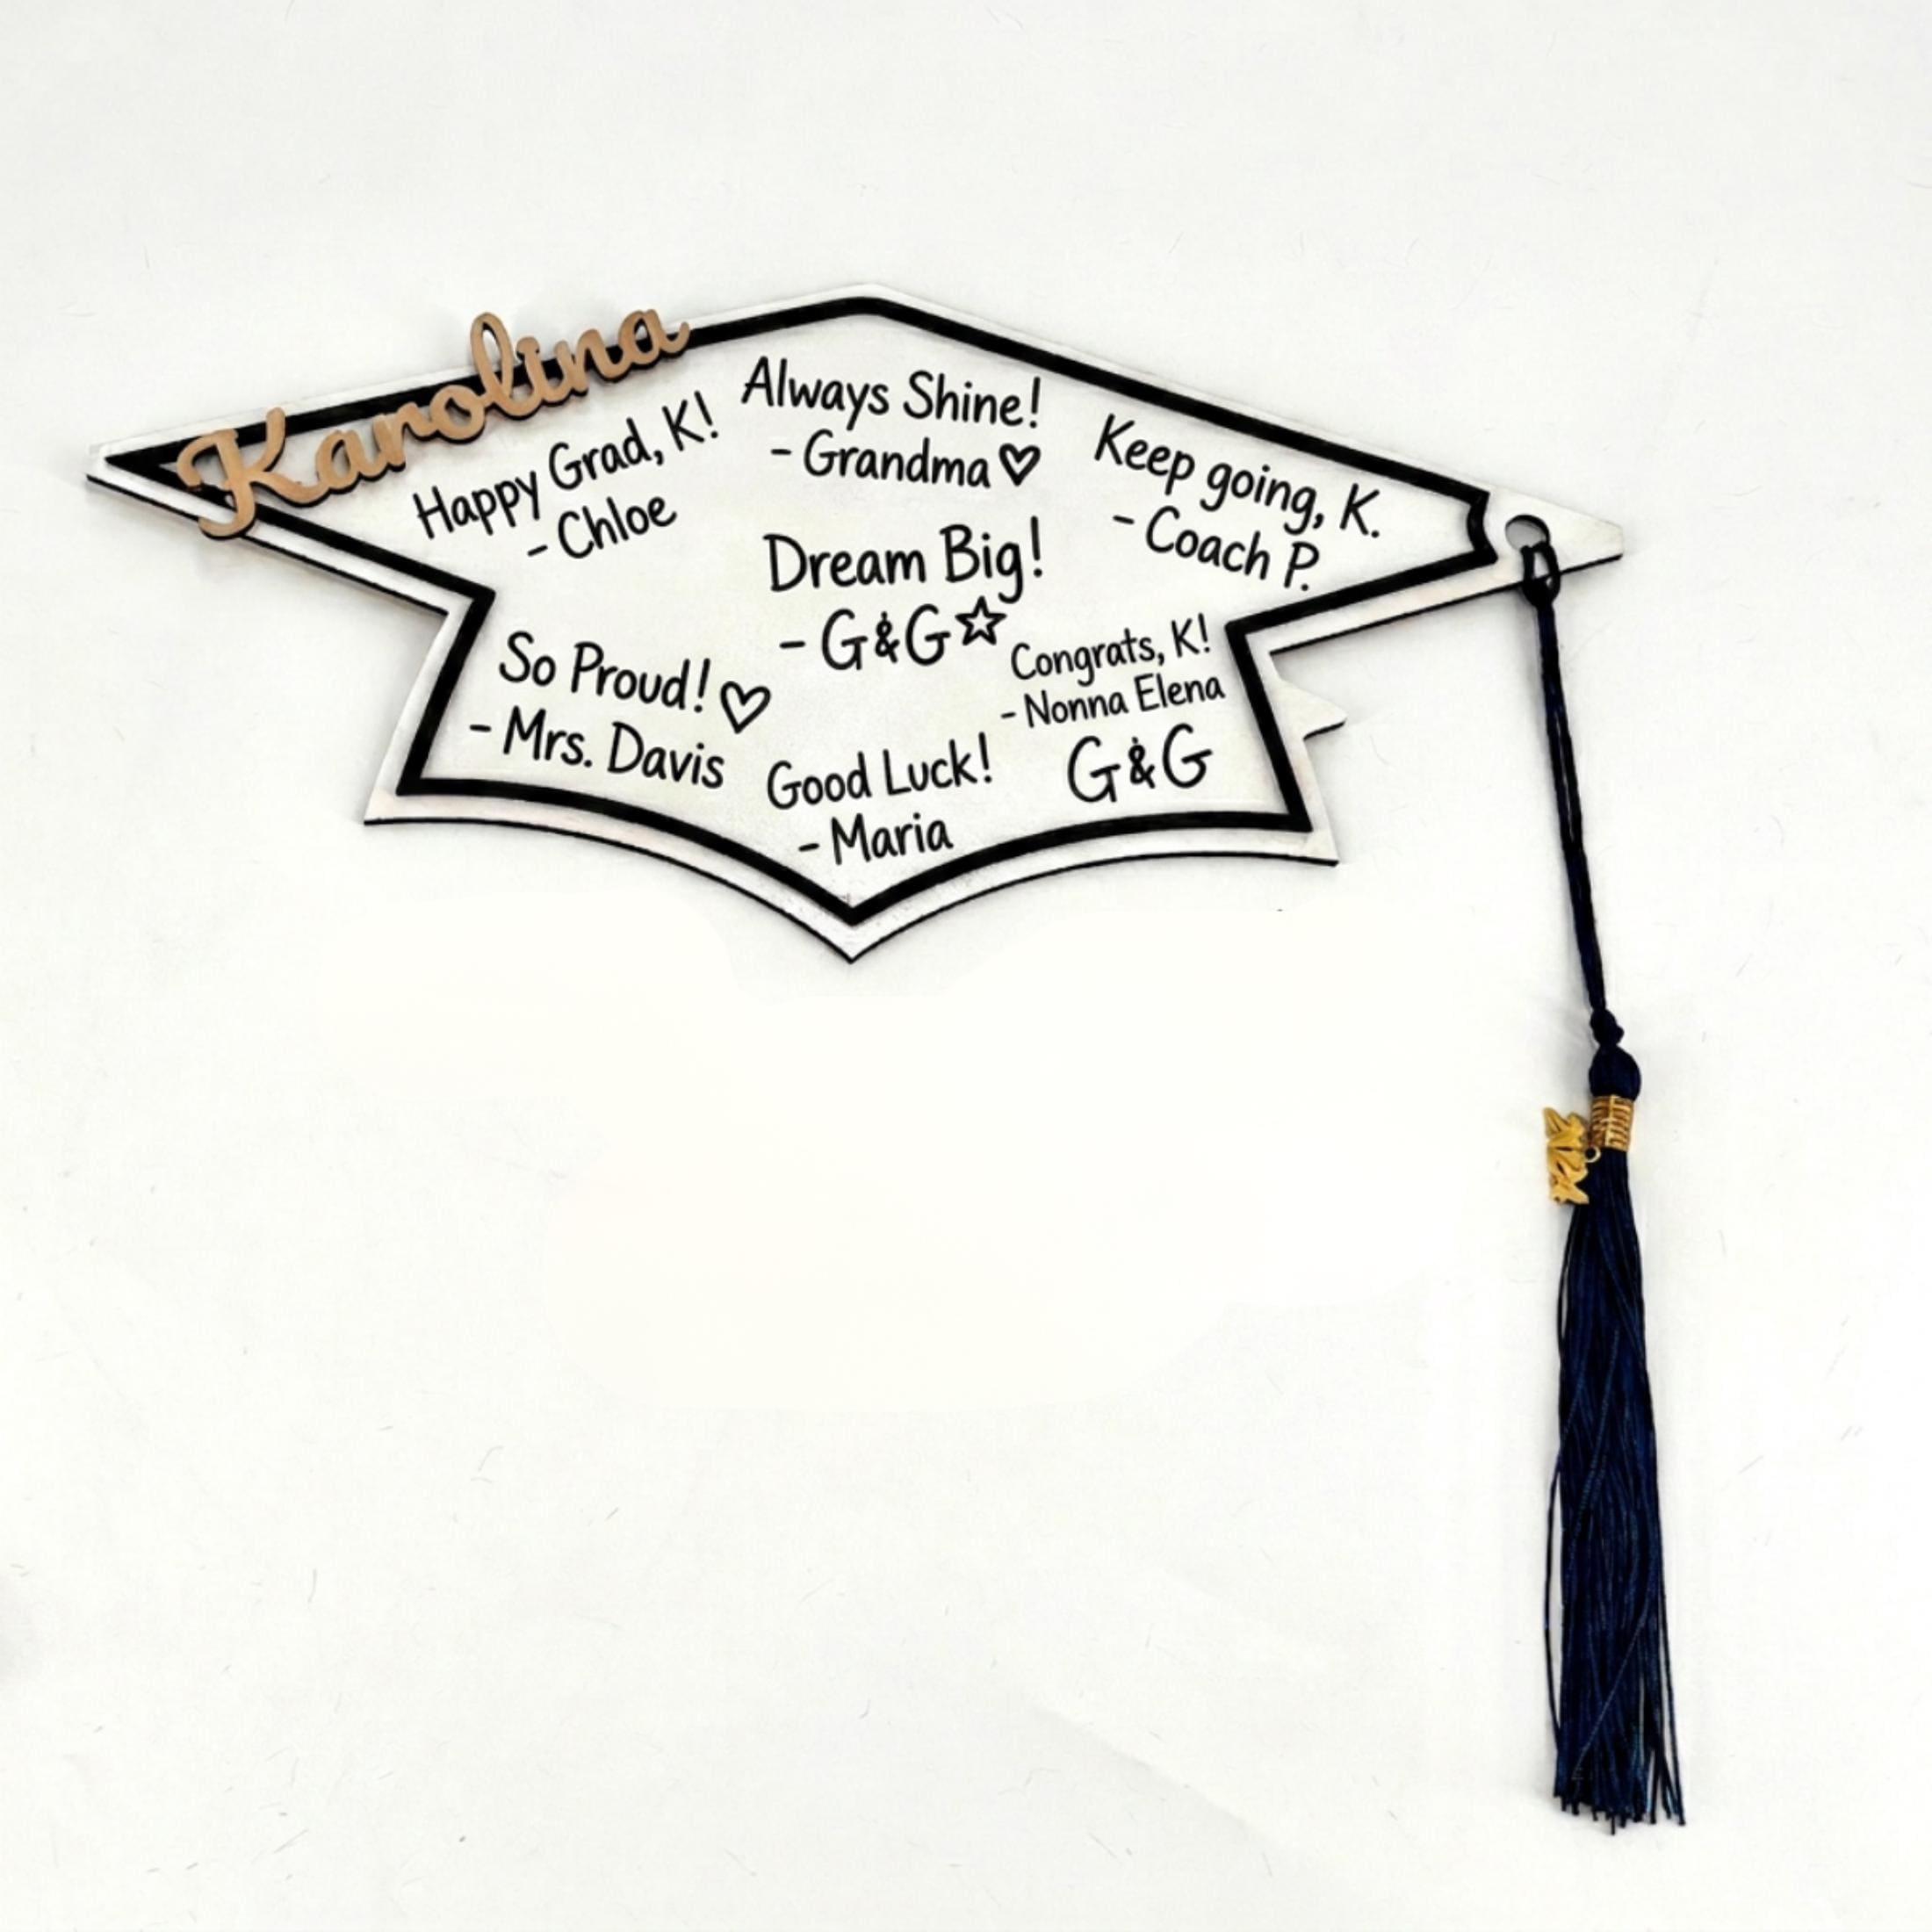 Karolina
Happy Grad, K!
- Chloe
Always Shine!
- Grandma ♡
Keep going, K.
- Coach P.
Dream Big!
- G&G ☆
So Proud! ♡
- Mrs. Davis
Congrats, K!
- Nonna Elena
G&G
Good Luck!
- Maria